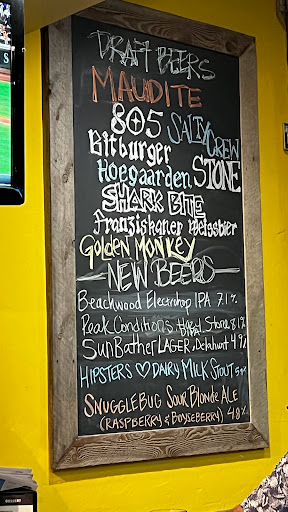 DRAFT BEERS
MAUDITE
805 SALTY CREW
Bitburger
Hoegaarden STONE
SHARK BITE
Franziskaner Weissbier
Golden Monkey
NEW BEERS
Beachwood Electrohop IPA 7.1%
Peak Conditions Stone 8.1%
SunBather LAGER, 4.9%
HIPSTERS ♡ DAIRY MILK STOUT
SNUGGLEBUG SOUR BLONDE ALE
(RASPBERRY & BOYSEBERRY) 4.8%